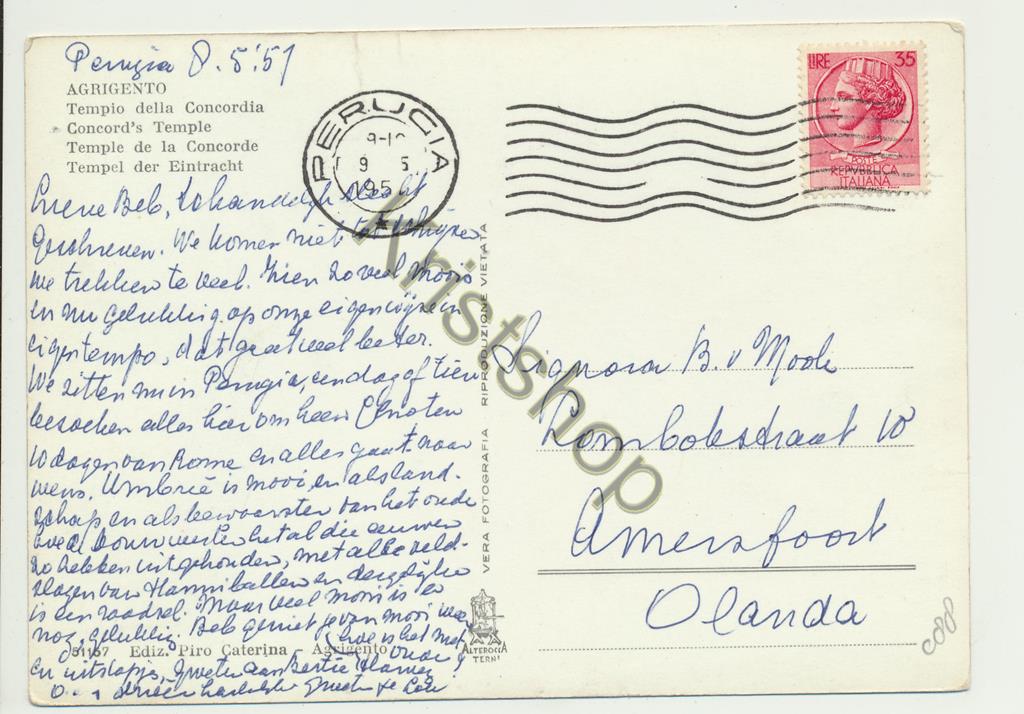 Perugia 8.5.'57
AGRIGENTO
Tempio della Concordia
Concord's Temple
Temple de la Concorde
Tempel der Eintracht
PERUGIA
9 5
195
LIRE 35
POSTE
REPVBBLICA
ITALIANA
Lieve Beb,
geschreven. We komen niet tot schrijven
we trekken te veel. Zien zoveel moois
en nu gelukkig op onze eigen wijze in
eigen tempo, dat gaat veel beter.
We zitten nu in Perugia, een dag of tien
bezoeken alles hier om heen. Genoten
10 dagen van Rome en alles gaat naar
wens. Umbrië is mooi, en als land-
schap en als bewaarster van het oude
bouwwerken het al die eeuwen
zo hebben uitgehouden, met alle veld-
slagen van Hannibal en dergelijke
is een raadsel. Maar veel moois is er
nog, gelukkig. Beb geniet je van mooi weer
hoe is het met
en uitstapjes, groeten aan
hartelijke groeten
Signora B. v Mook
Lombokstraat 10
Amersfoort
Olanda
VERA FOTOGRAFIA RIPRODUZIONE VIETATA
ALTEROCCA
TERNI
31167 Ediz. Piro Caterina - Agrigento
c88
Kristshop